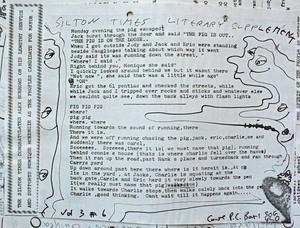 SILTON TIMES LITERARY SUPPLEMENT
Monday evening the pig escaped
Jack burst through the door and said "THE PIG IS OUT,
THE PIG IS ON THE LOOSE"
When I got outside Judy and Jack and Eric were standing
beside Camplages talking about which way it went
Judy said its was running down the street.
"Where?" I said.
Right behind you, Monique she said
I quickly looked around behind me but it wasnt there
"Not now", she said that was a little while ago"
OH
Eric got the Gi pontiac and checked the streets, while
while Jack and I tripped over rocks and sticks and whatever else
we couldnt quite see, down the back alleys with flash lights
PIG PIG PIG
pig
pig pig
where, where
Running towards the sound of running, there
There it is.
And we were off running chasing the pig, jack, eric, charlie, me and
suddenly there was carol,
Seeeeee, Soeeeee, there it is we must get that pig, running
behind connie s house (thats is where charlie fell over the hose)
Then it ran up the road, past Hank s place and turnedback and ran through
Carrys yard
up down around past here there where is it hereit is, At up
Its in the yard , At Jacks, Charlie is squating at the
back gate, Carole and Eric herd it very slowly towards the pen
it(we really must name that pig)
It walks towards Charlie stops, then walks calmly back into the pen
Charlie ,good thinking. Cant wait till it happens again.....
Vol 3 # 6
THE SILTON TIMES CONGRATULATES ALEX SIMEON ON HIS LENGTHY SERVICE